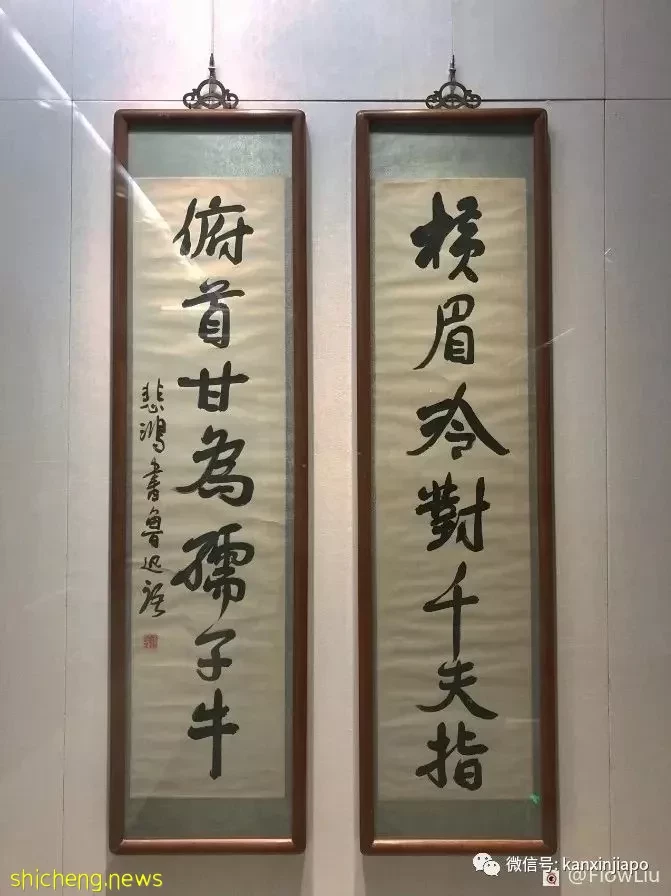 橫眉冷對千夫指
俯首甘為孺子牛
悲鴻書魯迅語
微信号: kanxinjiapo
@FlowLiu
shicheng.news